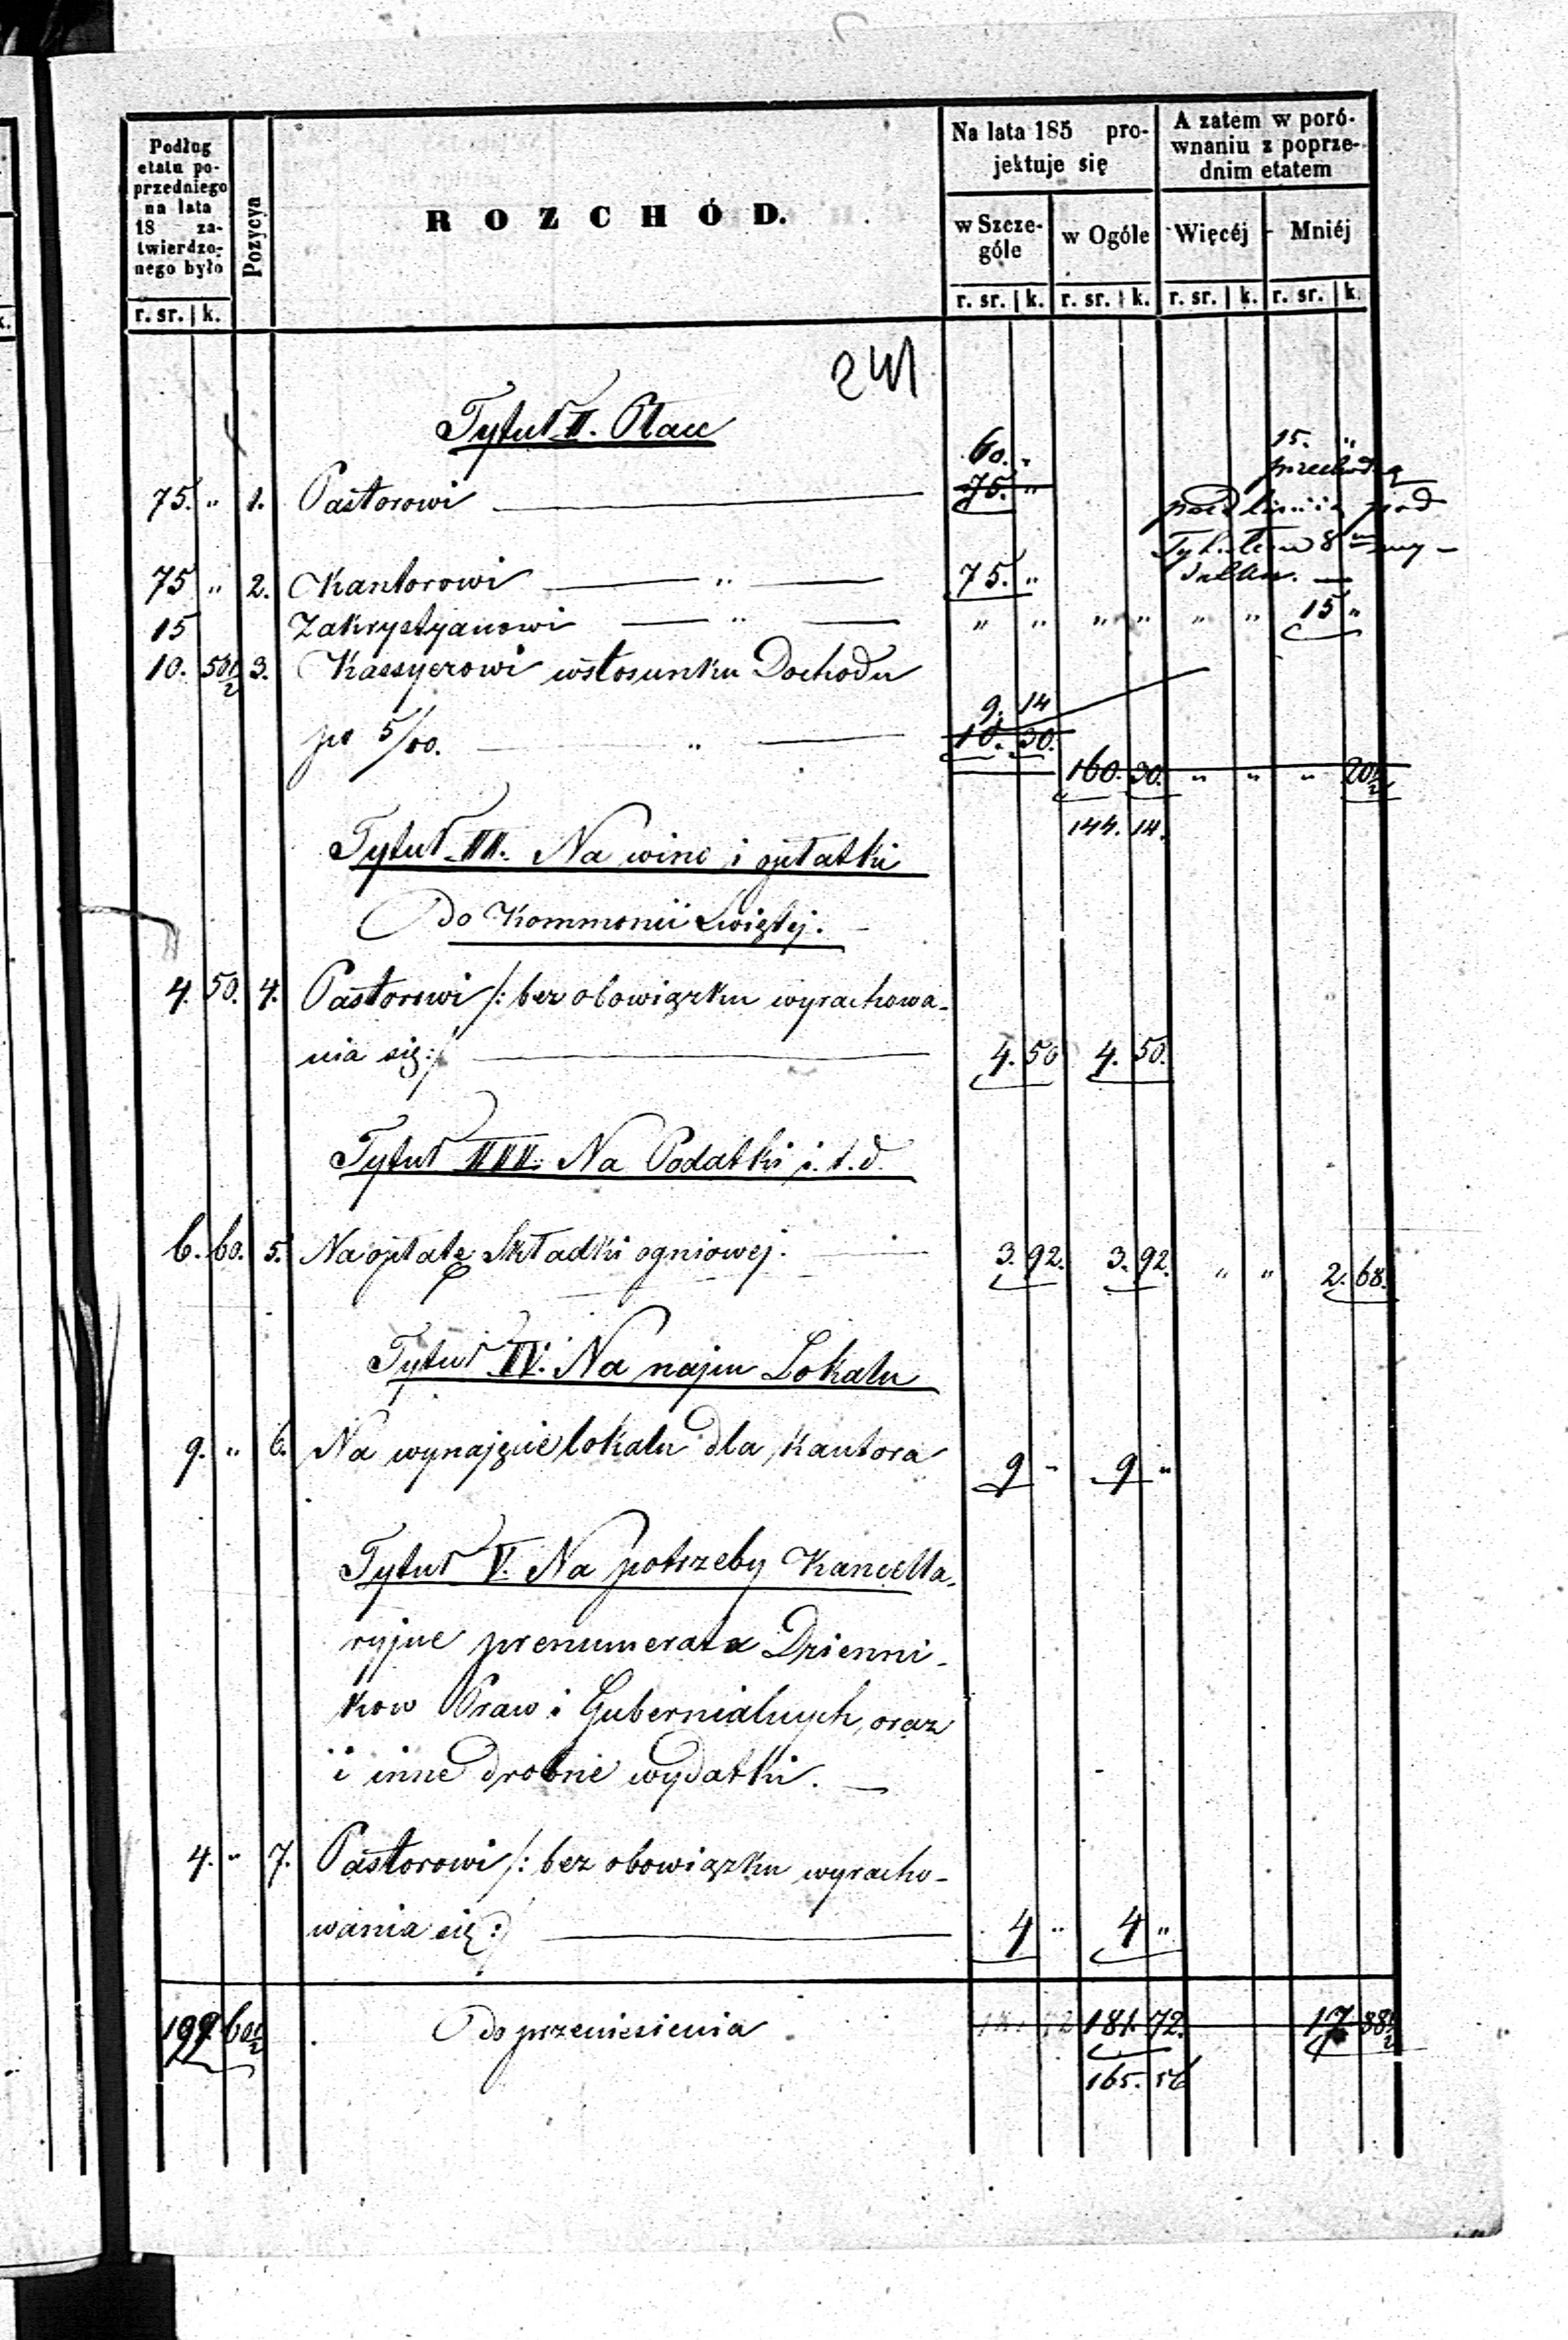 Podług etatu poprzedniego na lata 18 zatwierdzonego było
Pozycya
ROZCHÓD.
Na lata 185 projektuje się
A zatem w porównaniu z poprzednim etatem
w Szczególe
w Ogóle
Więcéj
Mniéj
r. sr. | k. r. sr. | k. r. sr. | k. r. sr. | k. r. sr. | k.
241
Tytuł I. Płace
60. "
15. "
przechodzą
75. " 1. Pastorowi 75. "
pod
Tytułem 8
75 " 2. Kantorowi " 75. "
15 Zakrystyanowi " " " " " " " 15 "
10. 50½ 3. Kassyerowi wstosunku Dochodu
9. 14
po 5/00. " 10. 30.
160. 30. " " " 20½
144. 14.
Tytuł II. Na wino i opłatki
Do Kommonii Swiętej.
4. 50. 4. Pastorowi /: bez obowiązku wyrachowa-
nia się :/ 4. 50 4. 50.
Tytuł III. Na Podatki i. t. d.
6. 60. 5. Na opłatę Składki ogniowej. 3. 92. 3. 92. " " 2. 68.
Tytuł IV. Na najm Lokalu
9. " 6. Na wynajęcie lokalu dla Kantora 9 " 9 "
Tytuł V. Na potrzeby Kancella-
ryjne prenumerata Dzienni-
kow Praw i Gubernialnych, oraz
i inne drobne wydatki.
4. " 7. Pastorowi /: bez obowiązku wyracho-
wania się :/ 4 " 4 "
199 60½ Do przeniesienia 181. 72. 17 88½
165. 56